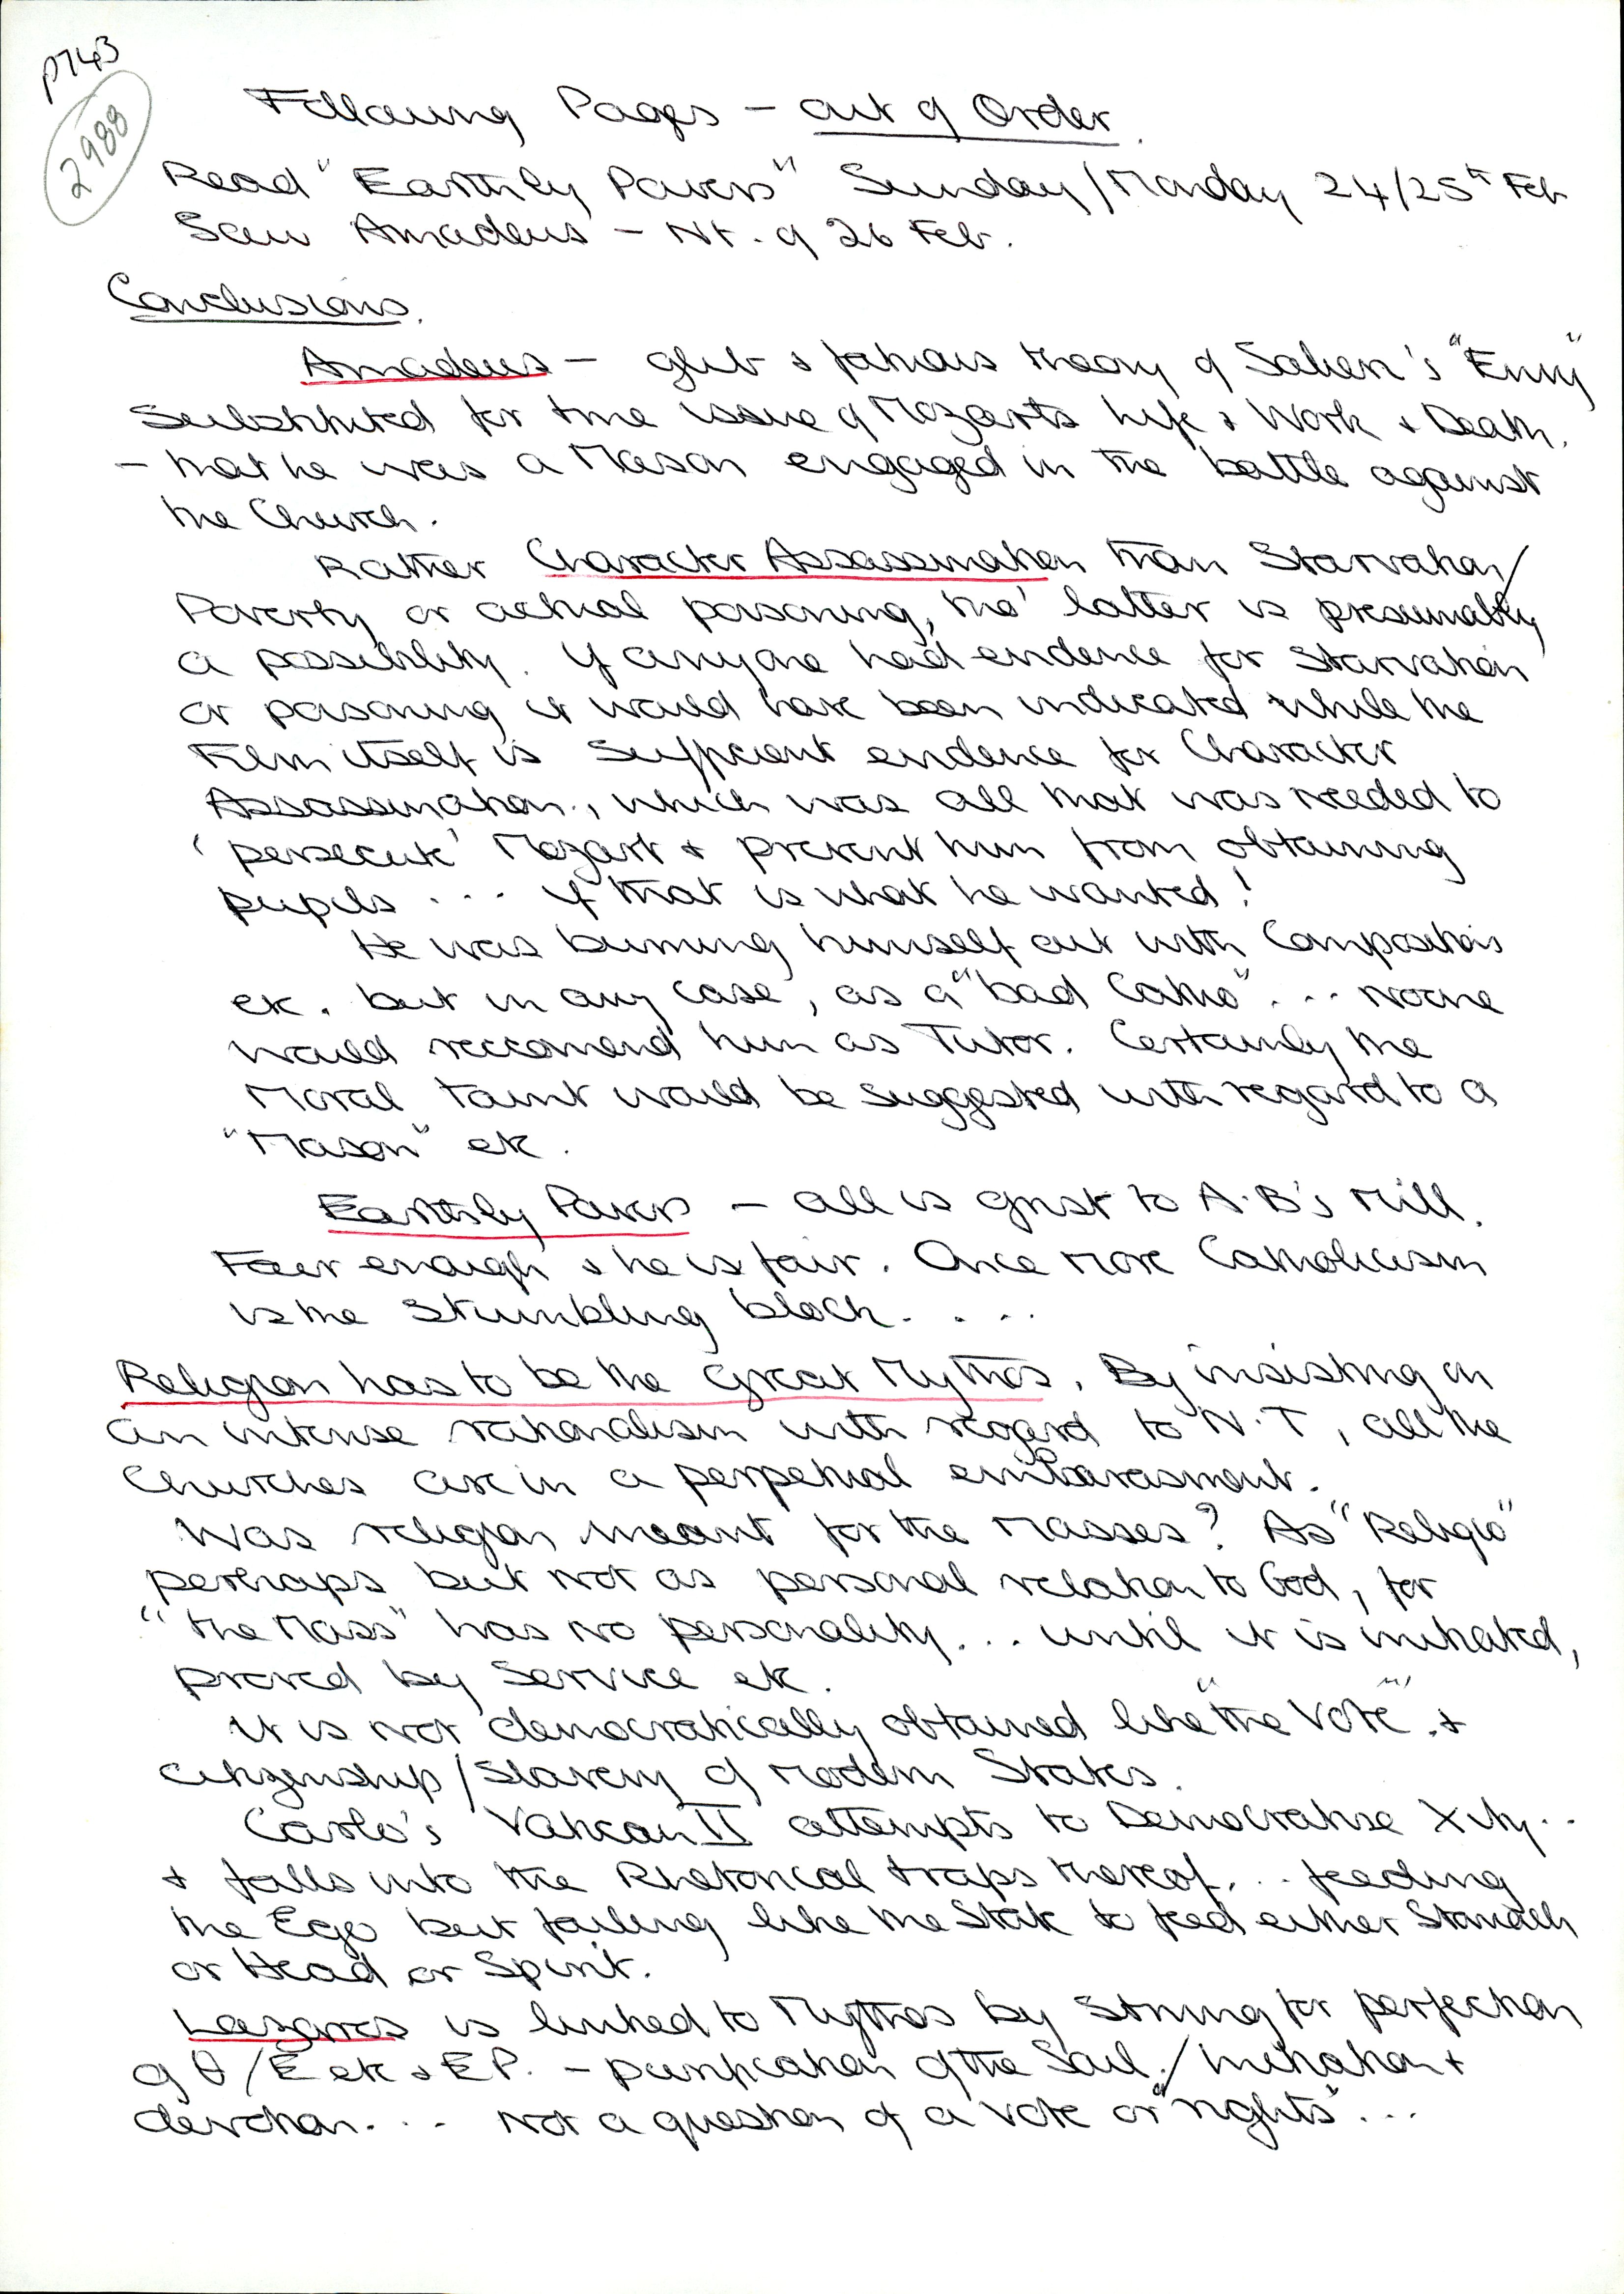 p743
2988
Following Pages - out of Order.
Read "Earthly Powers" Sunday/Monday 24/25t Feb
Saw Amadeus - Nt. of 26 Feb.
Conclusions.
Amadeus - glib & fatuous theory of Salieri's "Envy"
Substituted for true issue of Mozart's Life & Work & Death.
- that he was a Mason engaged in the battle against
the Church.
Rather Character Assassination than Starvation/
Poverty or actual poisoning, tho' latter is presumably
a possibility. If anyone had evidence for Starvation
or poisoning it would have been indicated while the
Film itself is sufficient evidence for Character
Assassination, which was all that was needed to
'persecute' Mozart & prevent him from obtaining
pupils ... if that is what he wanted!
He was burning himself out with Compositions
etc. but in any case, as a "bad Catho" ... Noone
would reccomend him as Tutor. Certainly the
Moral taint would be suggested with regard to a
"Mason" etc.
Earthly Powers - all is grist to A.B's Mill.
Fair enough & he is fair. Once more Catholicism
is the stumbling block. ...
Religion has to be the Great Mythos. By insisting on
an intense rationalism with regard to N.T, all the
Churches are in a perpetual embarasment.
Was religion meant for the Masses? As "Religio"
perhaps but not as personal relation to God, for
"the Mass" has no personality... until it is initiated,
proved by Service etc.
It is not democratically obtained like "the Vote" &
citizenship/slavery of Modern States.
Carlo's Vatican II attempts to Democratise Xity..
& falls into the Rhetorical traps thereof... feeding
the Ego but failing like the State to feed either Stomach
or Head or Spirit.
Lazarus is linked to Mythos by Striving for perfection
of θ/E etc & E P. - purification of the Soul./Initiation &
devotion... Not a question of a vote or "rights"...